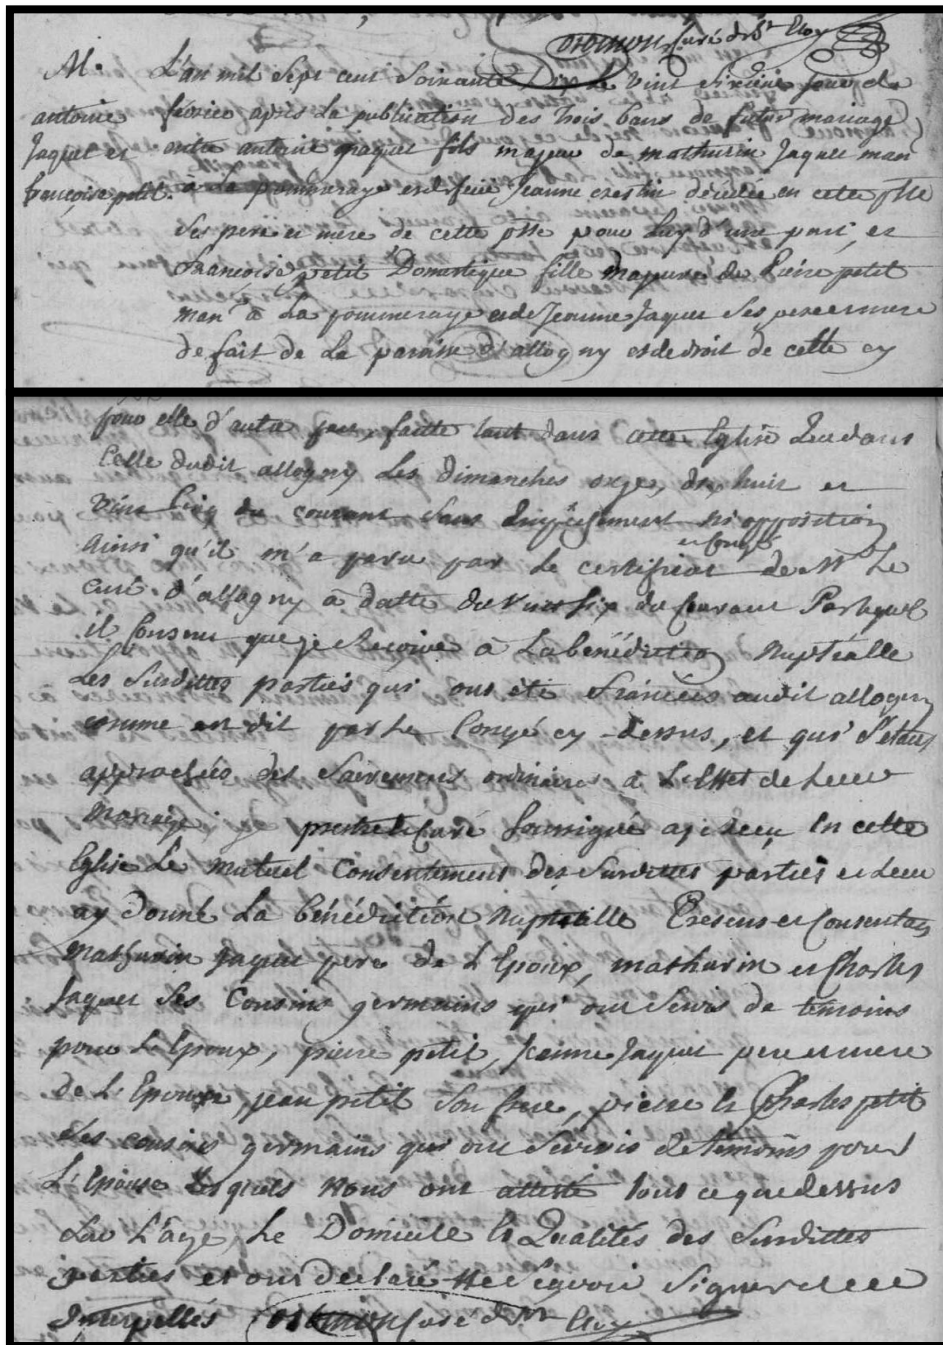 curé de St Eloy
M. L'an mil sept cent soixante dix Le vint sixieme jour de
antoine fevrier après La publication des trois bans de futur mariage
Jaquet et entre antoine jaquet fils majeur de mathurin Jaquet man
françoise petit. à La pommeraye et de feüe Jeanne crestin décédée en cette psse
Ses pere et mere de cette psse pour Luy d'une part, et
françoise petit Domestique fille majeure de Piere petit
man à La pommeraye et de Jeanne Jaquet Ses pere et mere
de fait de La paroisse d'allogny et de droit de cette cy
pour elle d'autre part faitte tant dans cette Eglise que dans
Celle dudit allogny Les Dimanches onze, dix huit et
vint Cinq du courant Sans Empêchement ni opposition
et congé
ainsi qu'il m'a paru par Le certificat de Mr Le
curé d'allogny à datte du vint Six du Courant Par lequel
il Consent que je Recoive à La bénédiction Nuptialle
Les Susdittes parties qui ont été fiancées audit allogny
comme est dit par Le Congé cy-dessus, et qui S'etant
approchées des Sacremens ordinaires à L'Effet de Leur
Mariage, je pretre Curé Soussigné ay Recu En cette
Eglise Le mutuel Consentement des Susdittes parties et Leur
ay Donné La bénédiction Nuptialle Presens et Consentans
Mathurin Jaquet pere de L'Epoux, mathurin et Charles
Jaquet Ses Cousins germains qui ont Servis de temoins
pour L'Epoux, pierre petit, Jeanne Jaquet pere et mere
de L'Epouse, jean petit Son frere, pierre et Charles petit
Ses cousins germains qui ont Servis de temoins pour
L'Epouse Lesquels Nous ont attesté tout ce que dessus
Sur L'âge, Le Domicile et Qualités des Susdittes
parties et ont declaré Ne Sçavoir Signer de ce
Interpellés curé de St Eloy